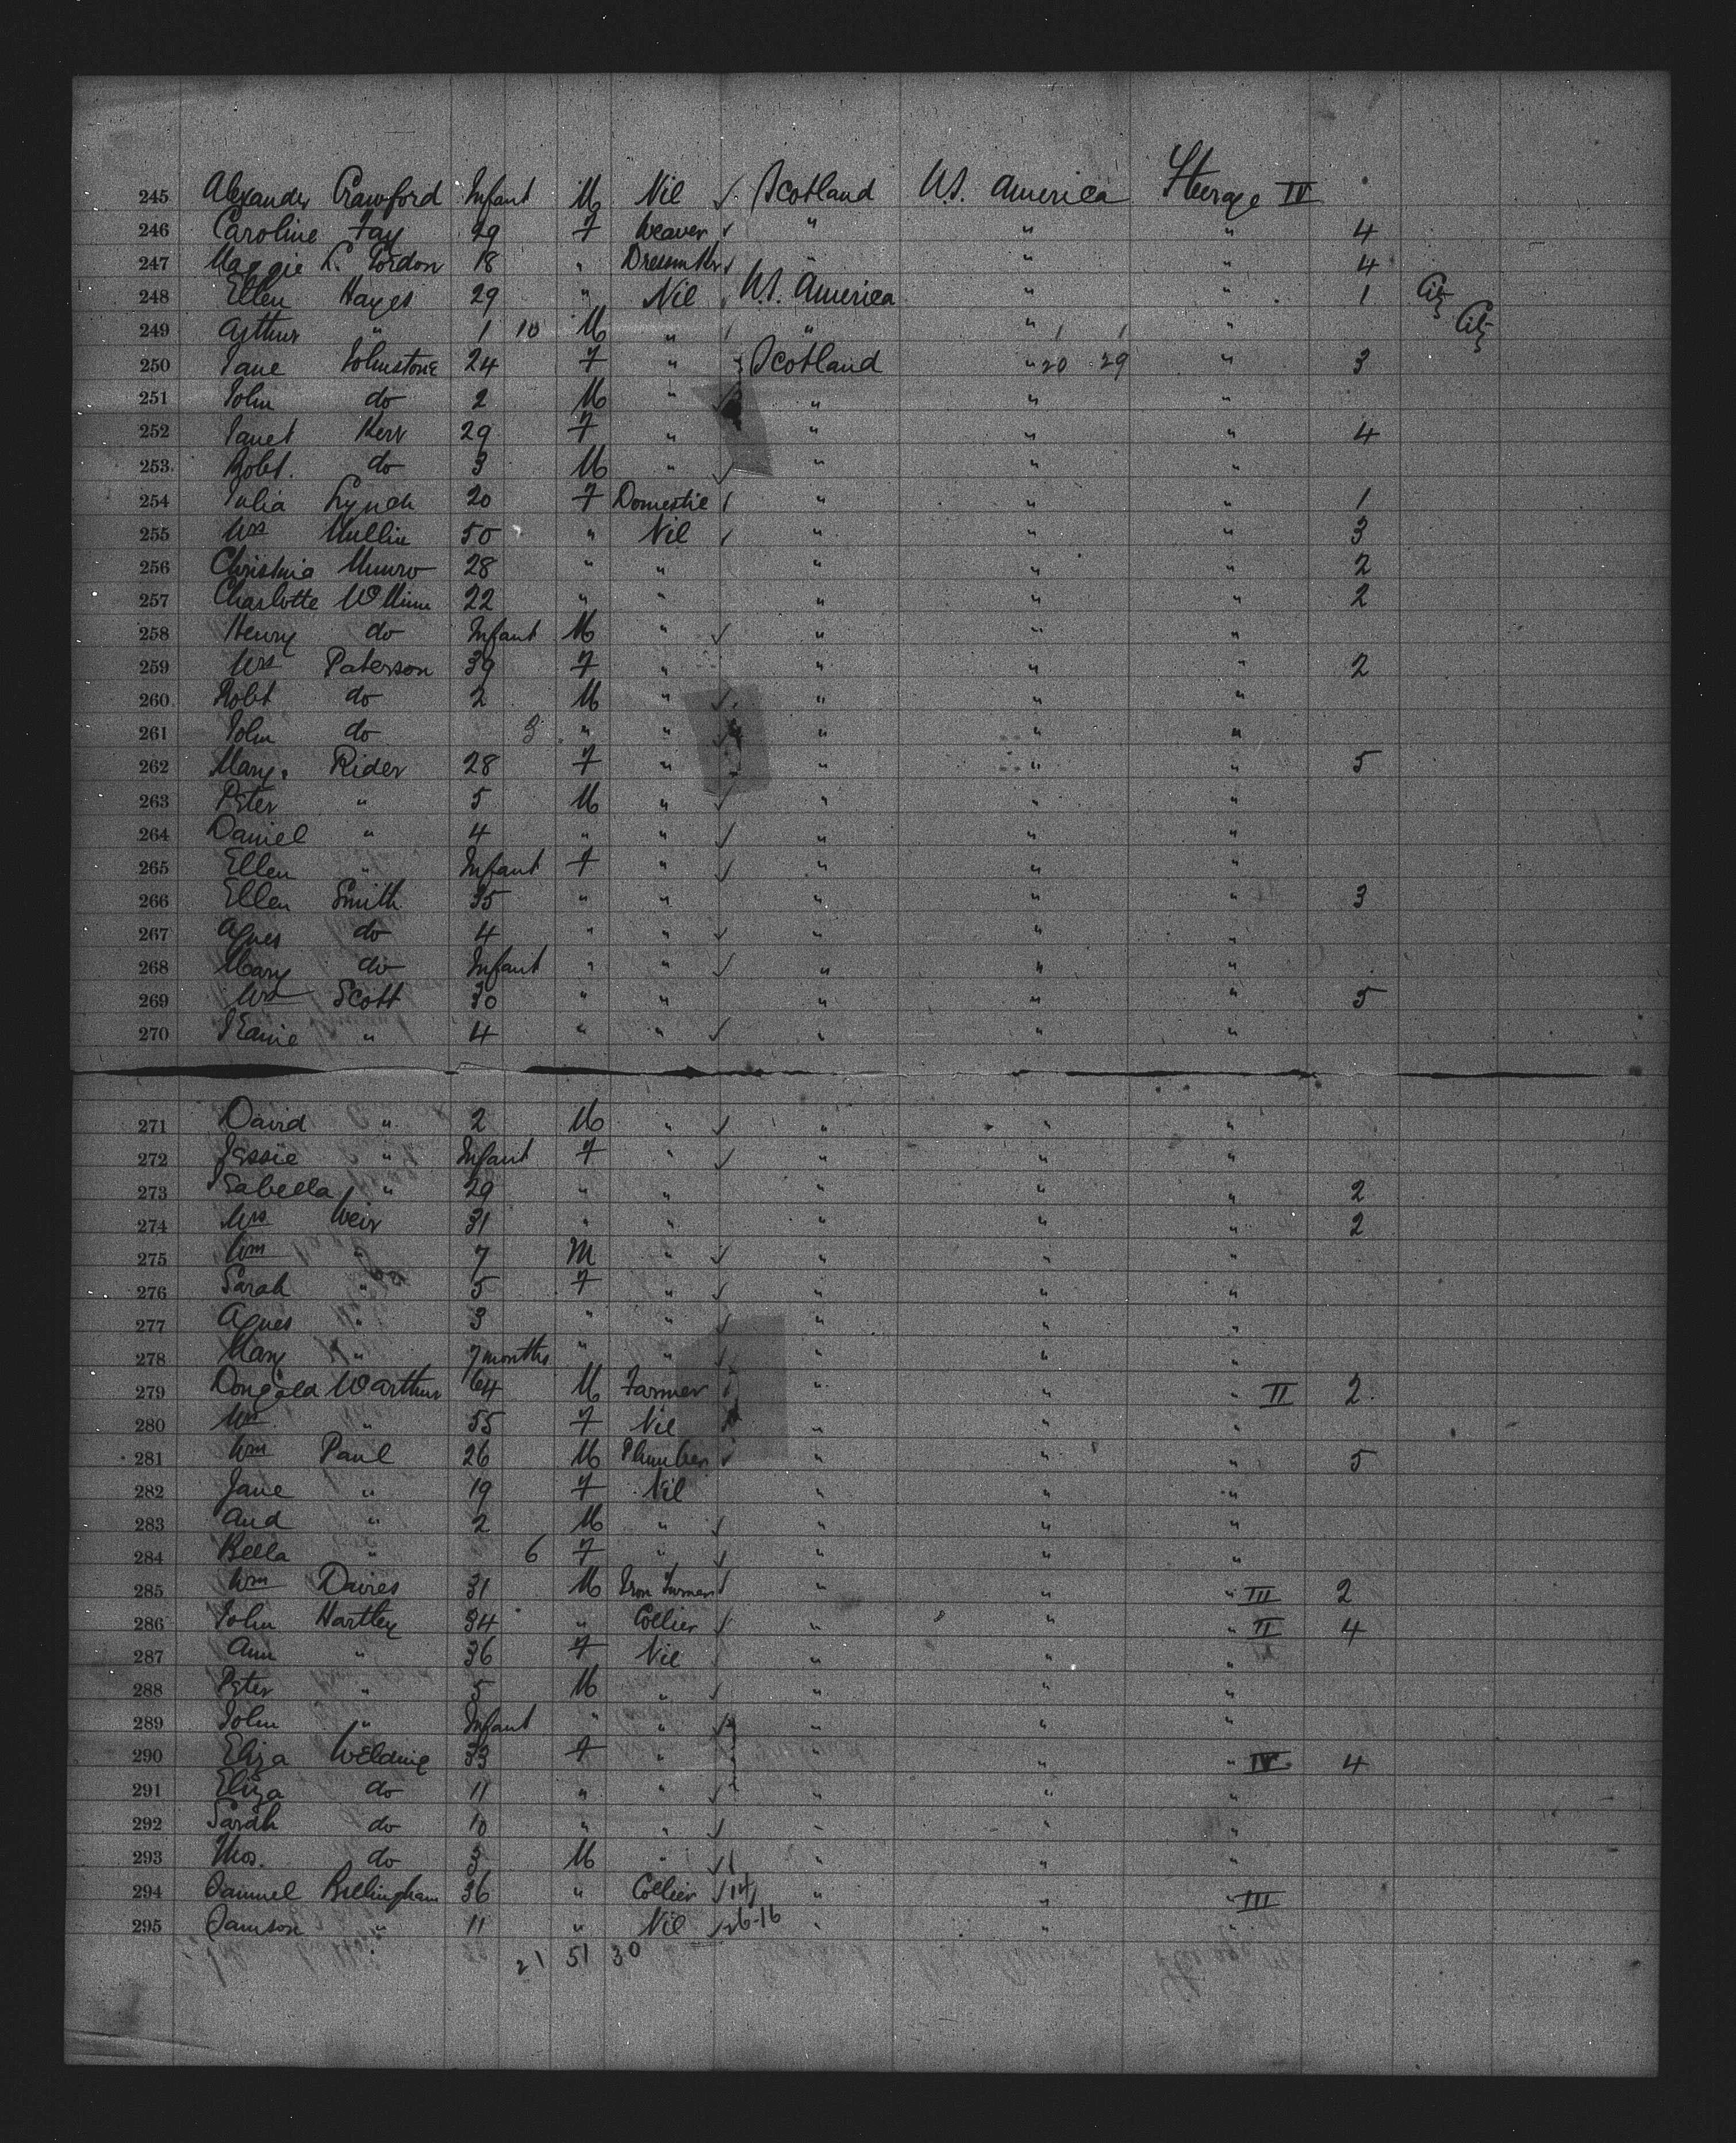 245 Alexander Crawford Infant M Nil ✓ Scotland U.S. America Steerage IV
246 Caroline Fay 29 F Weaver ✓ " " " 4
247 Maggie L. Gordon 18 " Dressmkr ✓ " " " 4
248 Ellen Hayes 29 " Nil U.S. America " " 1 Citz
249 Arthur " 1 10 M " " " " Citz
250 Jane Johnstone 24 F " Scotland " 20 29 " 3
251 John do 2 M " ✓ " " "
252 Janet Kerr 29 F " " " " 4
253 Robt. do 3 M " ✓ " " "
254 Julia Lynch 20 F Domestic " " " 1
255 Mrs Mullin 50 " Nil ✓ " " " 3
256 Christina Munro 28 " " " " " 2
257 Charlotte 22 " " " " " 2
258 Henry do Infant M " ✓ " " "
259 Mrs Paterson 39 F " " " " 2
260 Robt do 2 M " ✓ " " "
261 John do 3 " " ✓ " " "
262 Mary Rider 28 F " " " " 5
263 Peter " 5 M " ✓ " " "
264 Daniel " 4 " " ✓ " " "
265 Ellen " Infant F " ✓ " " "
266 Ellen Smith 35 " " " " " 3
267 Agnes do 4 " " ✓ " " "
268 Mary do Infant " " ✓ " " "
269 Mrs Scott 30 " " " " " 5
270 Jeanie " 4 " " ✓ " " "
271 David " 2 M " ✓ " " "
272 Jessie " Infant F " ✓ " " "
273 Isabella " 29 " " " " " 2
274 Mrs Weir 31 " " " " " 2
275 Wm " 7 M " ✓ " " "
276 Sarah " 5 F " ✓ " " "
277 Agnes " 3 " " ✓ " " "
278 Mary " 7 months " " ✓ " " "
279 Dougald McArthur 64 M Farmer ✓ " " " II 2
280 Mrs " 55 F Nil " " "
281 Wm Paul 26 M Plumber ✓ " " " 5
282 Jane " 19 F Nil " " "
283 And " 2 M " ✓ " " "
284 Bella " 6 F " ✓ " " "
285 Wm Davies 31 M Iron Turner ✓ " " " III 2
286 John Hartley 34 " Collier ✓ " " " II 4
287 Ann " 36 F Nil " " "
288 Peter " 5 M " ✓ " " "
289 John " Infant " " ✓ " " "
290 Eliza Welding 33 F " " " " IV 4
291 Eliza do 11 " " ✓ " " "
292 Sarah do 10 " " ✓ " " "
293 Thos. do 3 M " ✓ " " "
294 Samuel Billingham 36 " Collier ✓ 14 " " " III
295 Samson " 11 " Nil ✓ 26-16 " " "
21 51 30